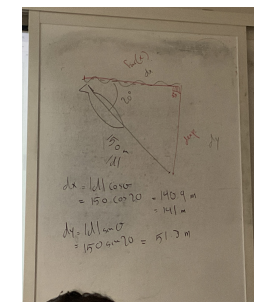 dx
20°
150 m
|d|
dx = |d| cosθ
= 150 cos 20 = 140.9 m
= 141 m
dy = |d| sinθ
= 150 sin 20 = 51.3 m